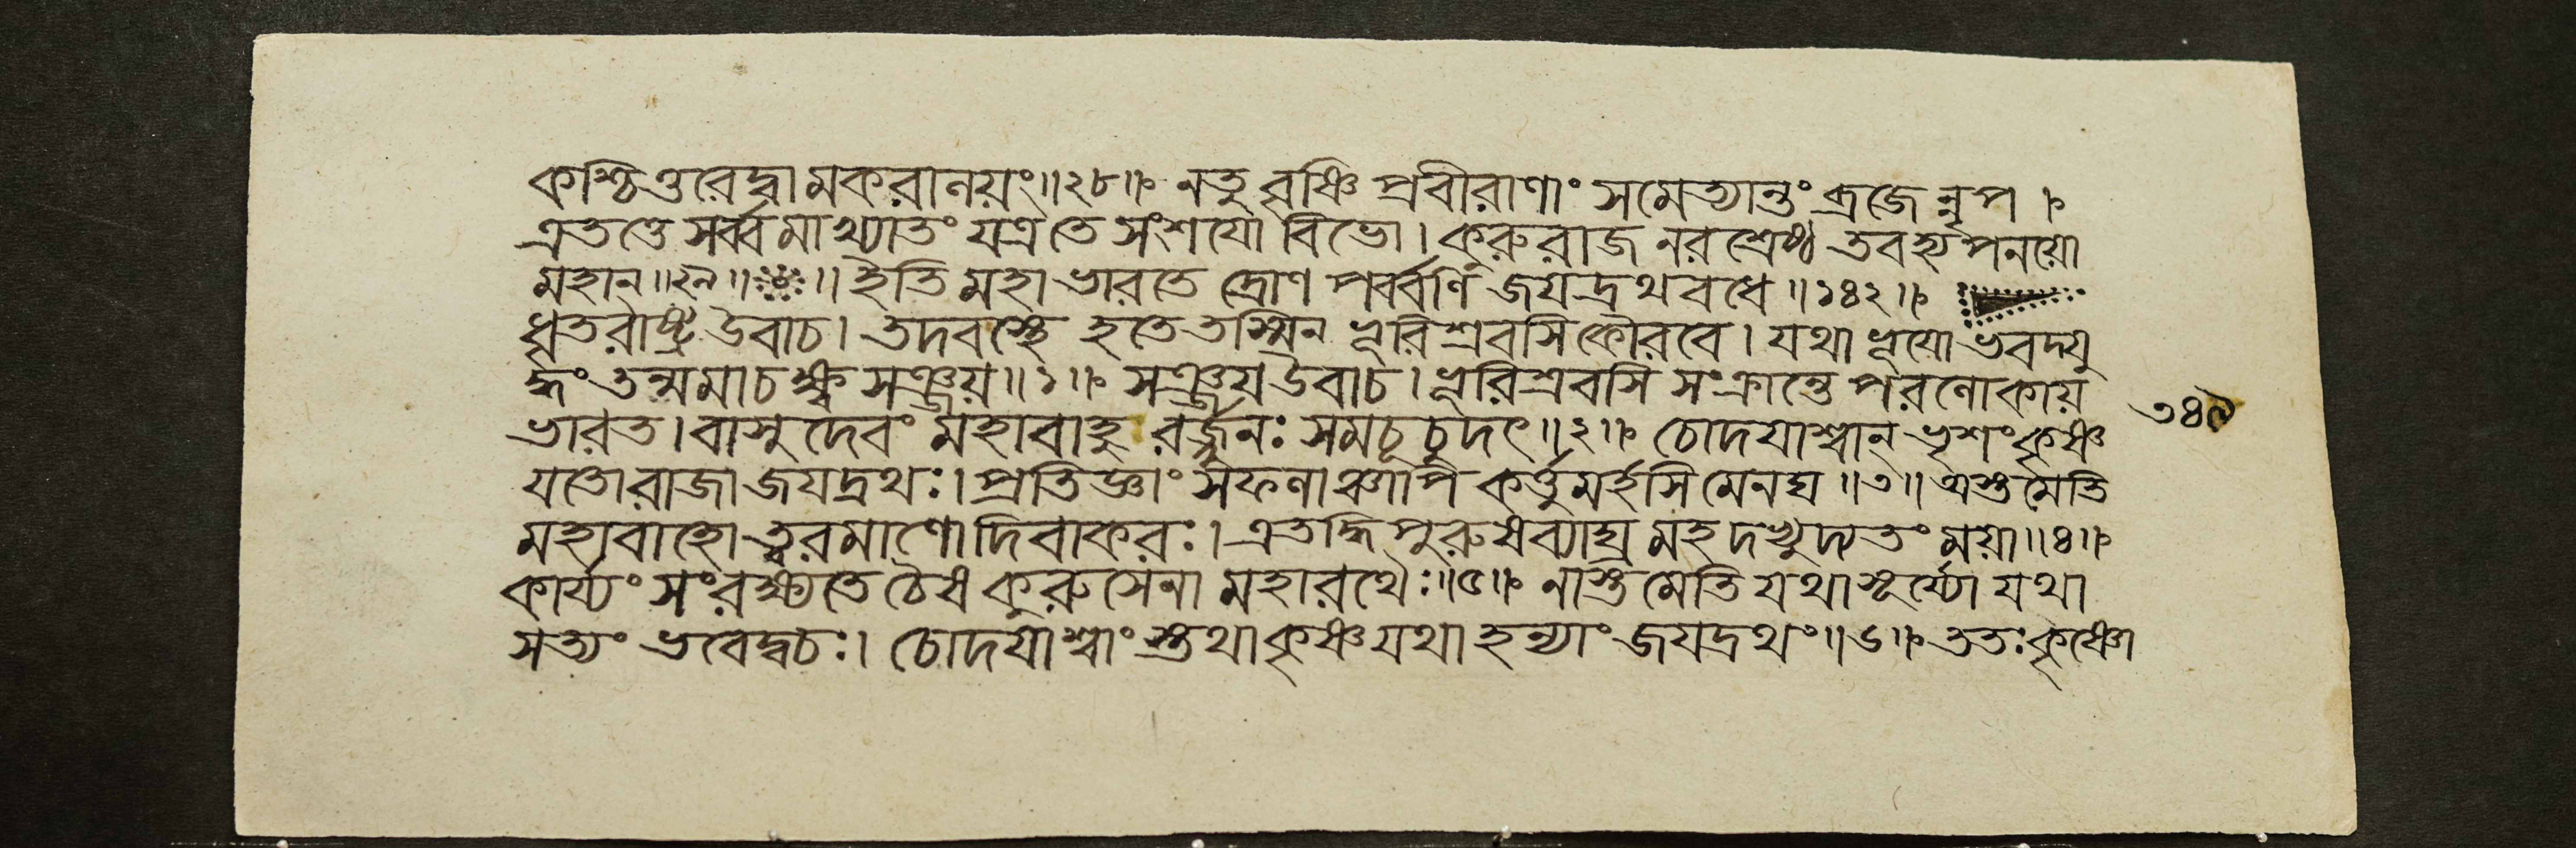 কশ্চিত্তরেদ্বামকরালয়ং॥২৮॥ নতু বৃষ্ণি প্রবীরাণাং সমেত্যান্তং ব্রজেন্নৃপ।
এতত্তে সর্ব্বমাখ্যাতং যত্রতে সংশয়ো বিভো। কুরুরাজ নরশ্রেষ্ঠ তবহ্যপনয়ো
মহান্॥২৯॥ ॥ ইতি মহাভারতে দ্রোণ পর্ব্বণি জয়দ্রথবধে॥১৪২॥
ধৃতরাষ্ট্র উবাচ। তদবস্থে হতে তস্মিন ভূরিশ্রবসি কৌরবে। যথা ভূয়ো ভবদ্যু
দ্ধং তন্মমাচক্ষ্ব সঞ্জয়॥১॥ সঞ্জয় উবাচ। ভূরিশ্রবসি সংক্রান্তে পরলোকায়
ভারত। বাসুদেবং মহাবাহু রর্জ্জুনঃ সমচূচুদৎ॥২॥ চোদয়াশ্বান্ ভৃশং কৃষ্ণ
যতোরাজা জয়দ্রথঃ। প্রতিজ্ঞাং সফলাঞ্চাপি কর্ত্তুমর্হসি মেনঘ॥৩॥ অস্তমেতি
মহাবাহো ত্বরমাণো দিবাকরঃ। এতদ্ধি পুরুষব্যাঘ্র মহদভ্যুদ্যতং ময়া॥৪॥
কার্য্যং সংরক্ষ্যতে চৈষ কুরুসেনা মহারথৈঃ॥৫॥ নাস্তমেতি যথা সূর্য্যো যথা
সত্যং ভবেদ্বচঃ। চোদয়াশ্বাং স্তথা কৃষ্ণ যথা হন্যাং জয়দ্রথং॥৬॥ ততঃ কৃষ্ণো
৩৪৯